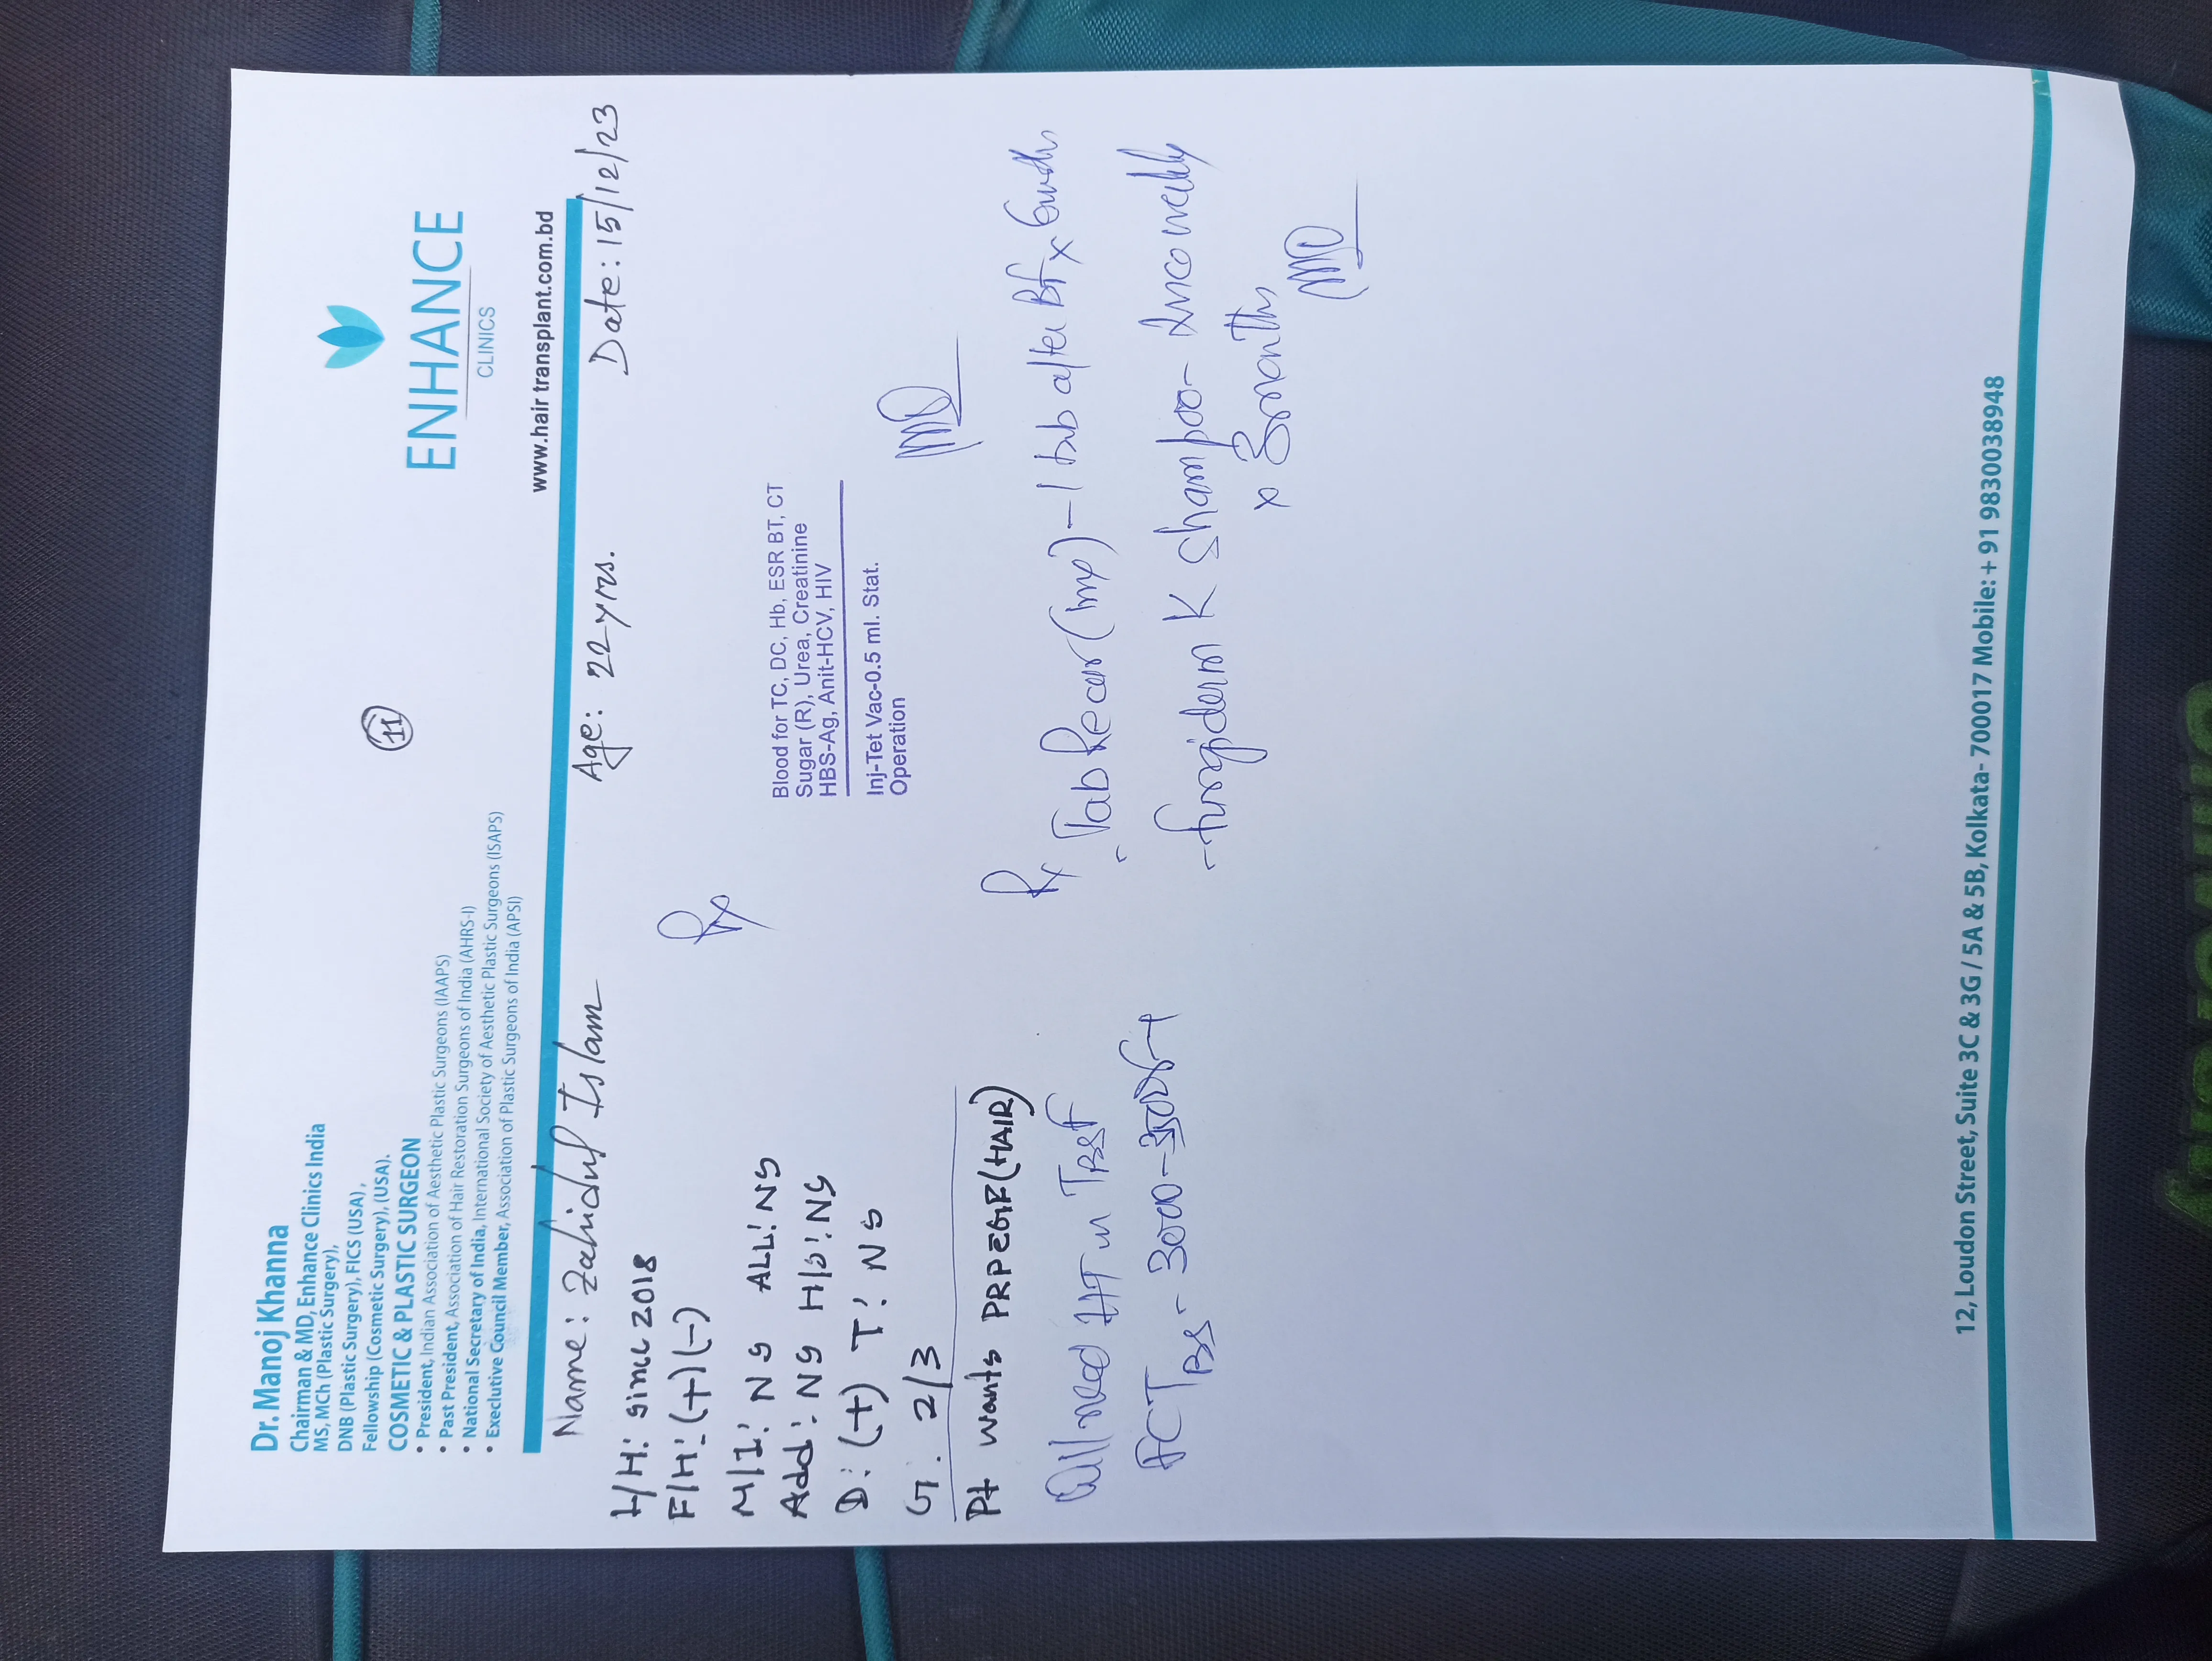 Dr. Manoj Khanna
Chairman & MD, Enhance Clinics India
MS, MCh (Plastic Surgery),
DNB (Plastic Surgery), FICS (USA),
Fellowship (Cosmetic Surgery), (USA).
COSMETIC & PLASTIC SURGEON
• President, Indian Association of Aesthetic Plastic Surgeons (IAAPS)
• Past President, Association of Hair Restoration Surgeons of India (AHRS-I)
• National Secretary of India, International Society of Aesthetic Plastic Surgeons (ISAPS)
• Execlutive Council Member, Association of Plastic Surgeons of India (APSI)
11
ENHANCE
CLINICS
www.hair transplant.com.bd
Name: Zahidul Islam Age: 22 yrs. Date: 15/12/23
H/H: since 2018
F/H: (+)(-)
M/I: NS ALL: NS
Add: NS H/S: NS
D: (+) T: NS
G: 2/3
Pt wants PRPEGF(HAIR)
Rx
Blood for TC, DC, Hb, ESR BT, CT
Sugar (R), Urea, Creatinine
HBS-Ag, Anit-HCV, HIV
Inj-Tet Vac-0.5 ml. Stat.
Operation
need HT in
3000-
Rx
Tab Recur (1mg) - 1 tab after BF x 6 months
- fungiderm K Shampoo - twice weekly
x 3 months
12, Loudon Street, Suite 3C & 3G / 5A & 5B, Kolkata- 700017 Mobile: + 91 9830038948